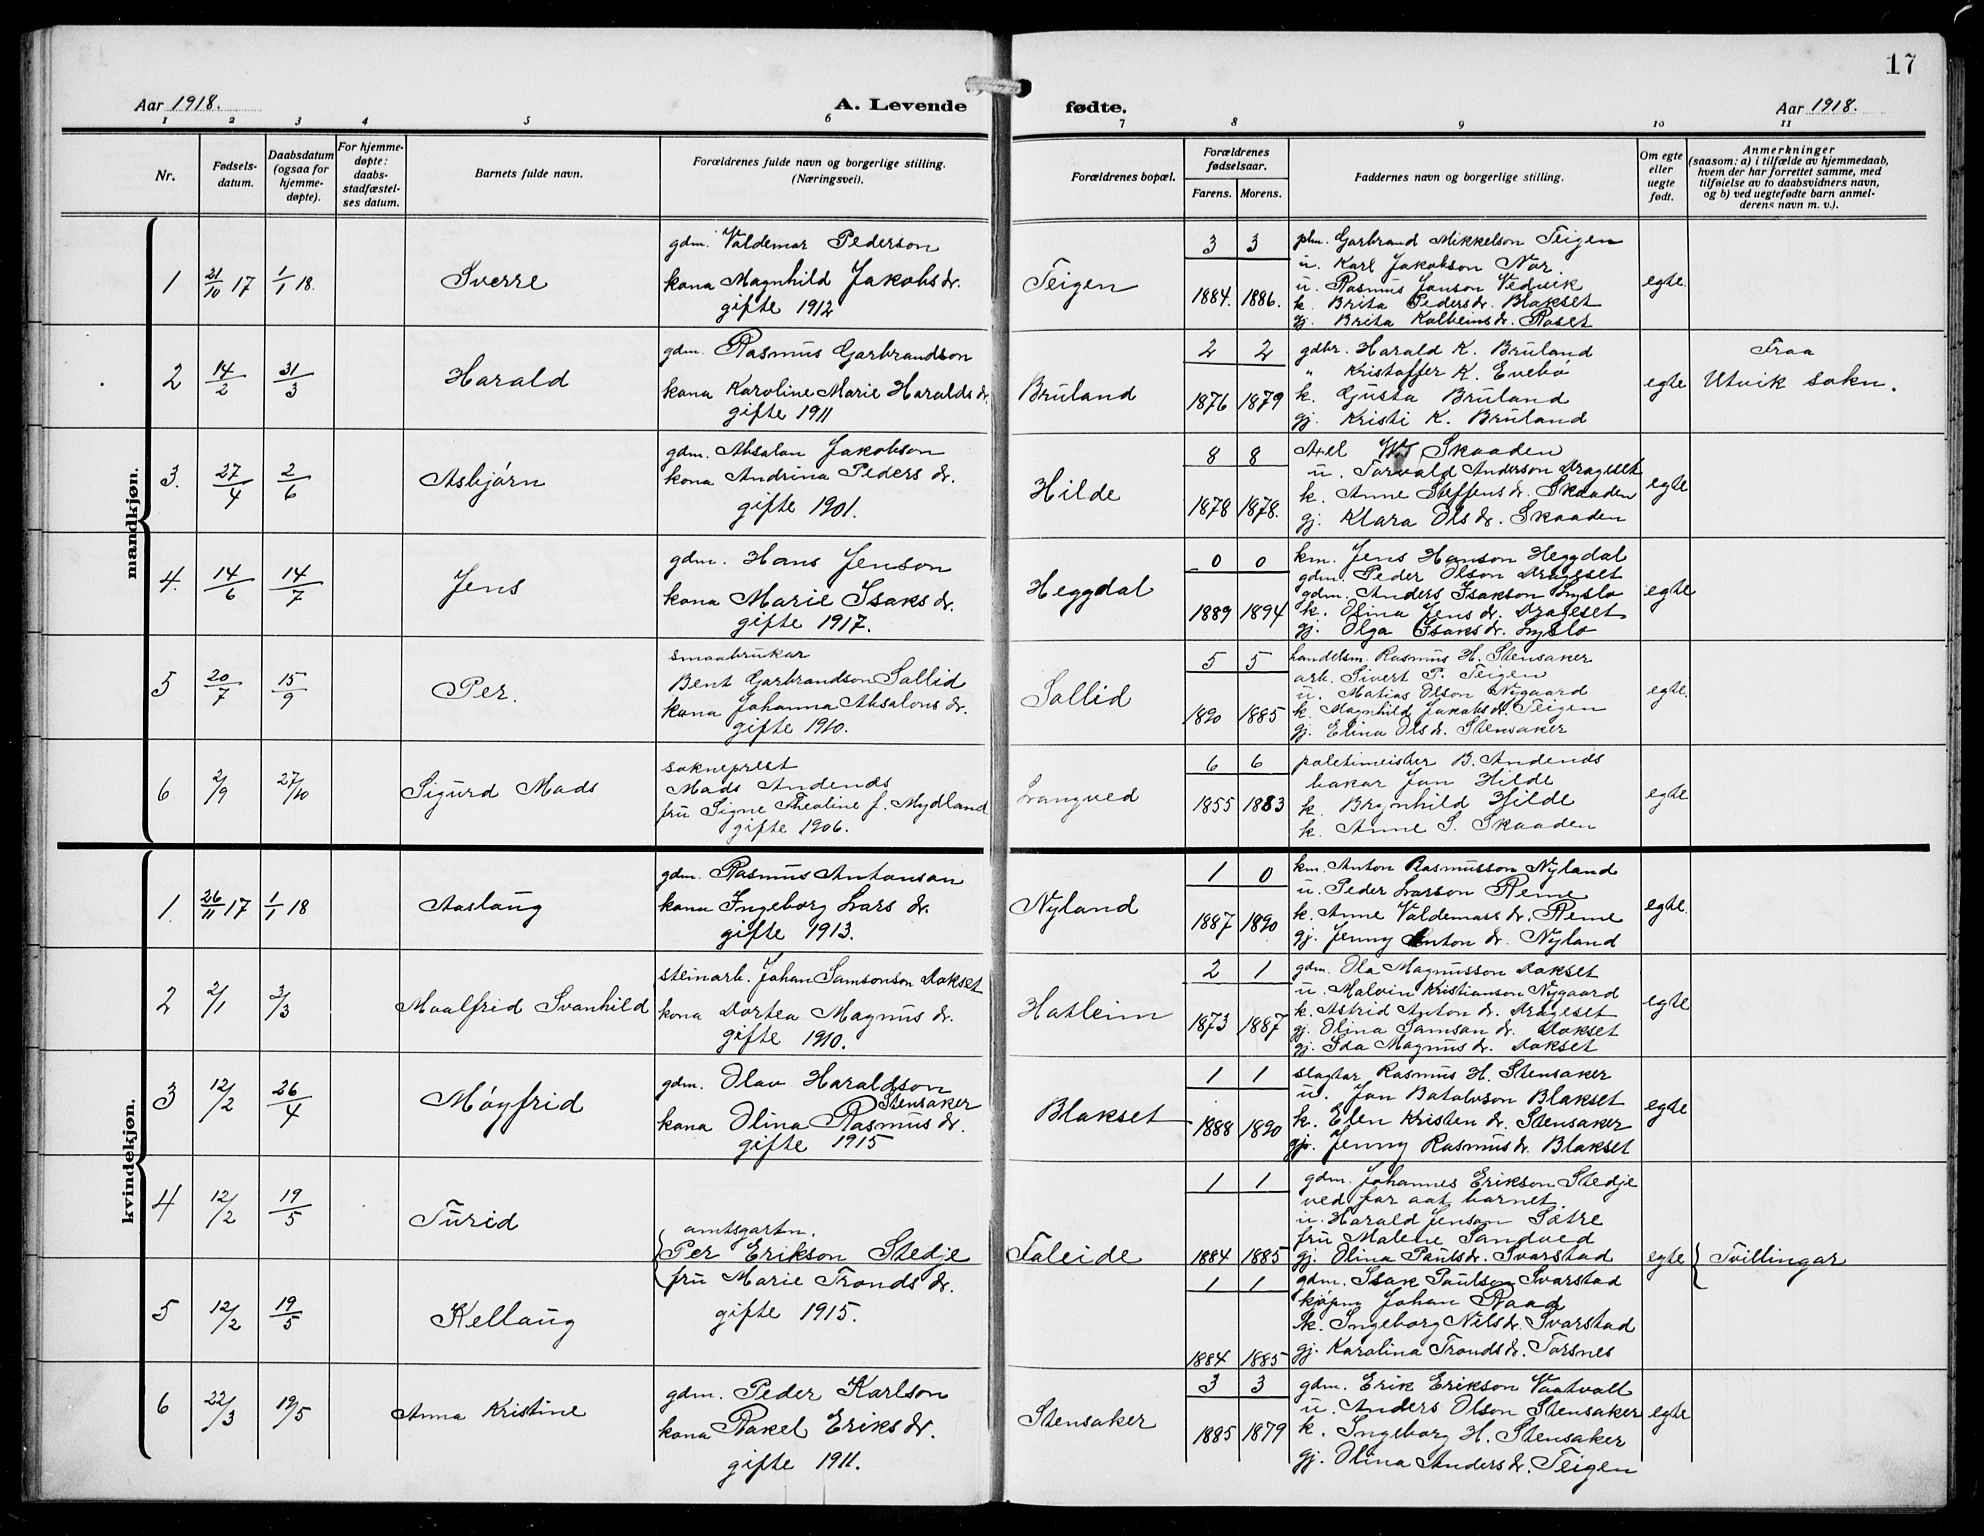 17
Aar 1918.
A. Levende
fødte.
Aar 1918.
1 2 3 4 5 6 7 8 9 10 11
Nr.
Fødsels-
datum.
Daabsdatum
(ogsaa for
hjemme-
døpte).
For hjemme-
døpte:
daabs-
stadfæstel-
ses datum.
Barnets fulde navn.
Forældrenes fulde navn og borgerlige stilling.
(Næringsvei).
Forældrenes bopæl.
Forældrenes
fødselsaar.
Farens. Morens.
Faddernes navn og borgerlige stilling.
Om egte
eller
uegte
født.
Anmerkninger
(saasom: a) i tilfælde av hjemmedaab,
hvem der har forrettet samme, med
tilføielse av to daabsvidners navn,
og b) ved uegtefødte barn anmel-
derens navn m. v.).
mandkjøn.
1 21/10 17 1/1 18. Sverre
gdm. Valdemar Pederson
kona Magnhild Jakobs dr.
gifte 1912
Teigen
3 3
1884. 1886.
plm. Garbrand Mikkelson Teigen
u. Karl Jakobson Nor.
u. Rasmus Janson Vedvik
k. Brita Peders dr. Blakset
gj. Brita Kolbeins dr. Roset
egte.
2 14/2 31/3 Harald
gdm. Rasmus Garbrandson
kona Karoline Marie Haralds dr.
gifte 1911
Bruland
2 2
1876 1879
gdbr. Harald K. Bruland
" Kristoffer K. Evebø
k. Gusta Bruland
gj. Kristi K. Bruland
egte
Fraa
Utvik sokn.
3. 27/4 2/6 Asbjørn
gdm. Absalon Jakobson
kona Andrina Peders dr.
gifte 1901.
Hilde
8 8
1878 1878.
Axel Skaaden
u. Torvald Anderson Drageset
k. Anne Steffens dr. Skaaden
gj. Klara Ols dr. Skaaden
egte
4. 14/6 14/7 Jens
gdm. Hans Jenson
kona Marie Isaks dr.
gifte 1917.
Heggdal
0 0
1889 1894
km. Jens Hanson Heggdal
gdm. Peder Olson Drageset
gdm. Anders Isakson Lyslo
k. Olina Jens dr. Drageset
gj. Olga Isaks dr. Lyslo
egte
5 20/7 15/9 Per.
smaabrukar
Bent Garbrandson Sollid
kona Johanna Absalons dr.
gifte 1910.
Sollid
5 5
1890 1885
handelsm. Rasmus H. Stensaker
arb. Sivert P. Teigen
u. Matias Olson Nygaard
k. Magnhild Jakobs dr. Teigen
gj. Elina Ols dr. Stensaker
egte.
6 2/9 27/10 Sigurd Mads
sokneprest
Mads Andends
fru Signe Thealine f. Mydland
gifte 1906.
Langved
6 6
1855 1883
politimeister B. Andends
bakar Jan Hilde
k. Brynhild Hilde
k. Anne S. Skaaden
egte
kvindekjøn.
1. 26/11 17 1/1 18 Aaslaug
gdm. Rasmus Antonson
kona Ingeborg Lars dr.
gifte 1913.
Nyland
1 0
1887 1890
km. Anton Rasmusson Nyland
u. Peder Larson Reme
k. Anne Valdemars dr. Reme
gj. Jenny Anton dr. Nyland
egte.
2 2/1 3/3 Maalfrid Svanhild
steinarb. Johan Samsonson Lokset
kona Dortea Magnus dr.
gifte 1910.
Hatleim
2 1
1873 1887
gdm. Ola Magnusson Lokset
u. Malvin Kristianson Nygaard
k. Astrid Anton dr. Drageset
gj. Olina Samson dr. Lokset
gj. Ida Magnus dr. Lokset
egte
3 12/2 26/4 Møyfrid
gdm. Olav Haraldson
Stensaker
kona Olina Rasmus dr.
gifte 1915
Blakset
1 1
1888 1890
slagtar Rasmus H. Stensaker
u. Jan Batolvson Blakset
k. Elen Kristen dr. Stensaker
gj. Jenny Rasmus dr. Blakset
egte
4 12/2 19/5 Turid
amtsgartn.
Per Erikson Stedje
fru Marie Tronds dr.
gifte 1915.
Faleide
1 1
1884 1885
gdm. Johannes Erikson Stedje
ved far aat barnet.
u. Harald Jenson Sætre
fru Malene Sandved
gj. Olina Pauls dr. Svarstad
egte
Tvillingar
5 12/2 19/5 Kellaug
1 1
1884 1885
gdm. Isak Paulson Svarstad
kjøpm Johan Raad
k. Ingeborg Nils dr. Svarstad
gj. Karolina Tronds dr. Torsnes
6 22/3 19/5 Anna Kristine
gdm. Peder Karlson
kona Rakel Eriks dr.
gifte 1911.
Stensaker
3 3
1885 1879
gdm. Erik Erikson Vaatvolt
u. Anders Olson Stensaker
k. Ingeborg H. Stensaker
gj. Olina Anders dr. Teigen
egte